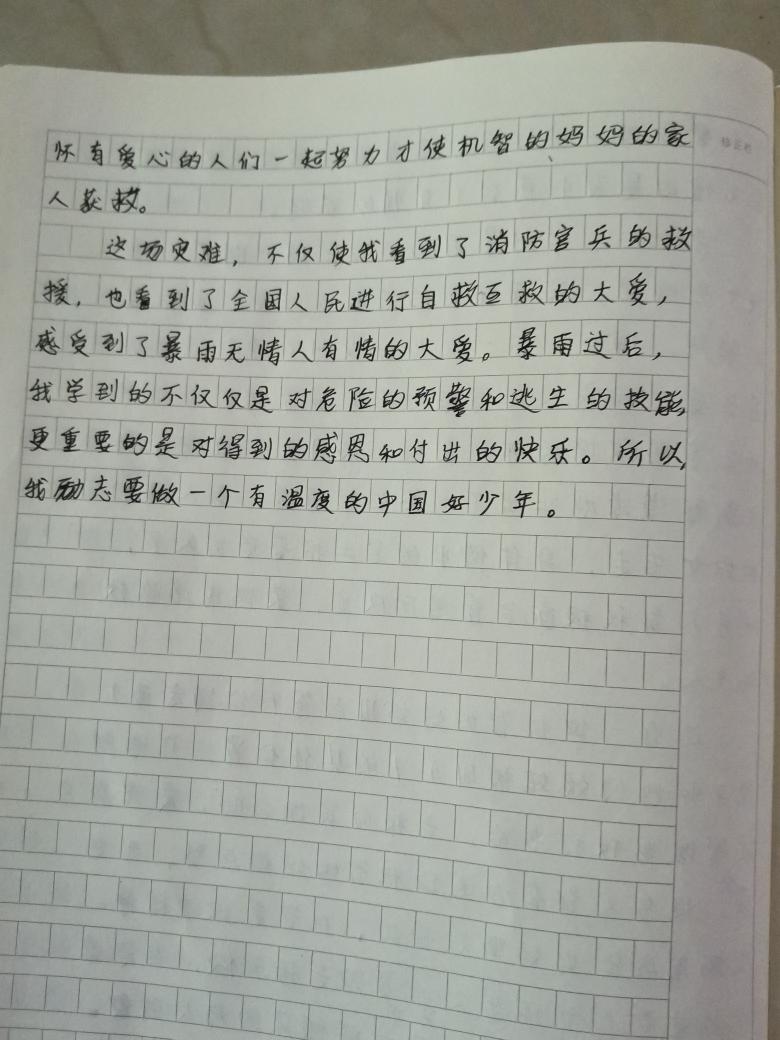 怀有爱心的人们一起努力才使机智的妈妈的家
人获救。
这场灾难，不仅使我看到了消防官兵的救
援，也看到了全国人民进行自救互救的大爱，
感受到了暴雨无情人有情的大爱。暴雨过后，
我学到的不仅仅是对危险的预警和逃生的技能，
更重要的是对得到的感恩和付出的快乐。所以，
我励志要做一个有温度的中国好少年。